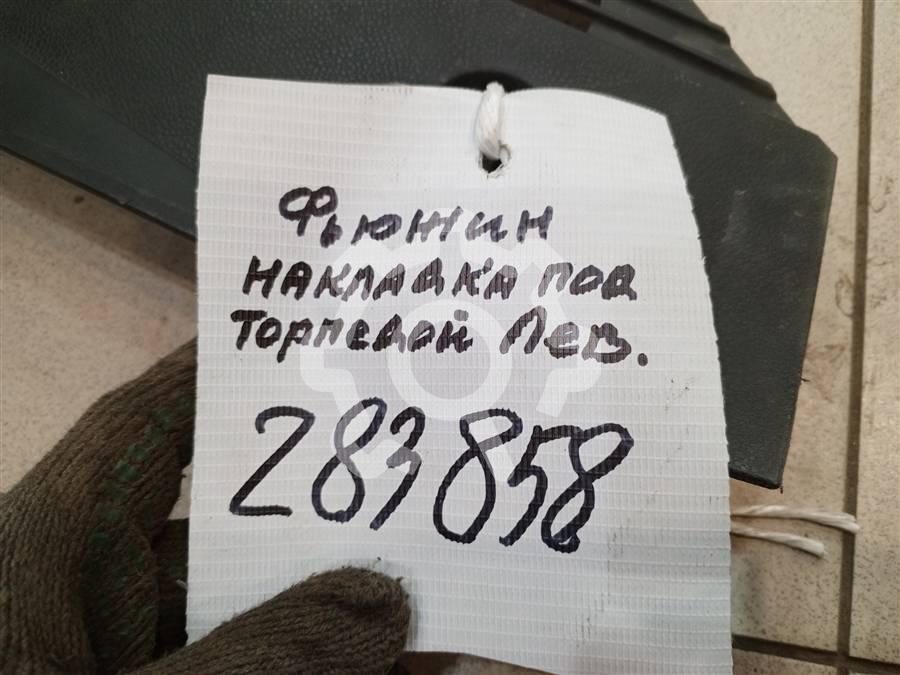 Фьюжин
накладка под
торпедой Лев.
283858